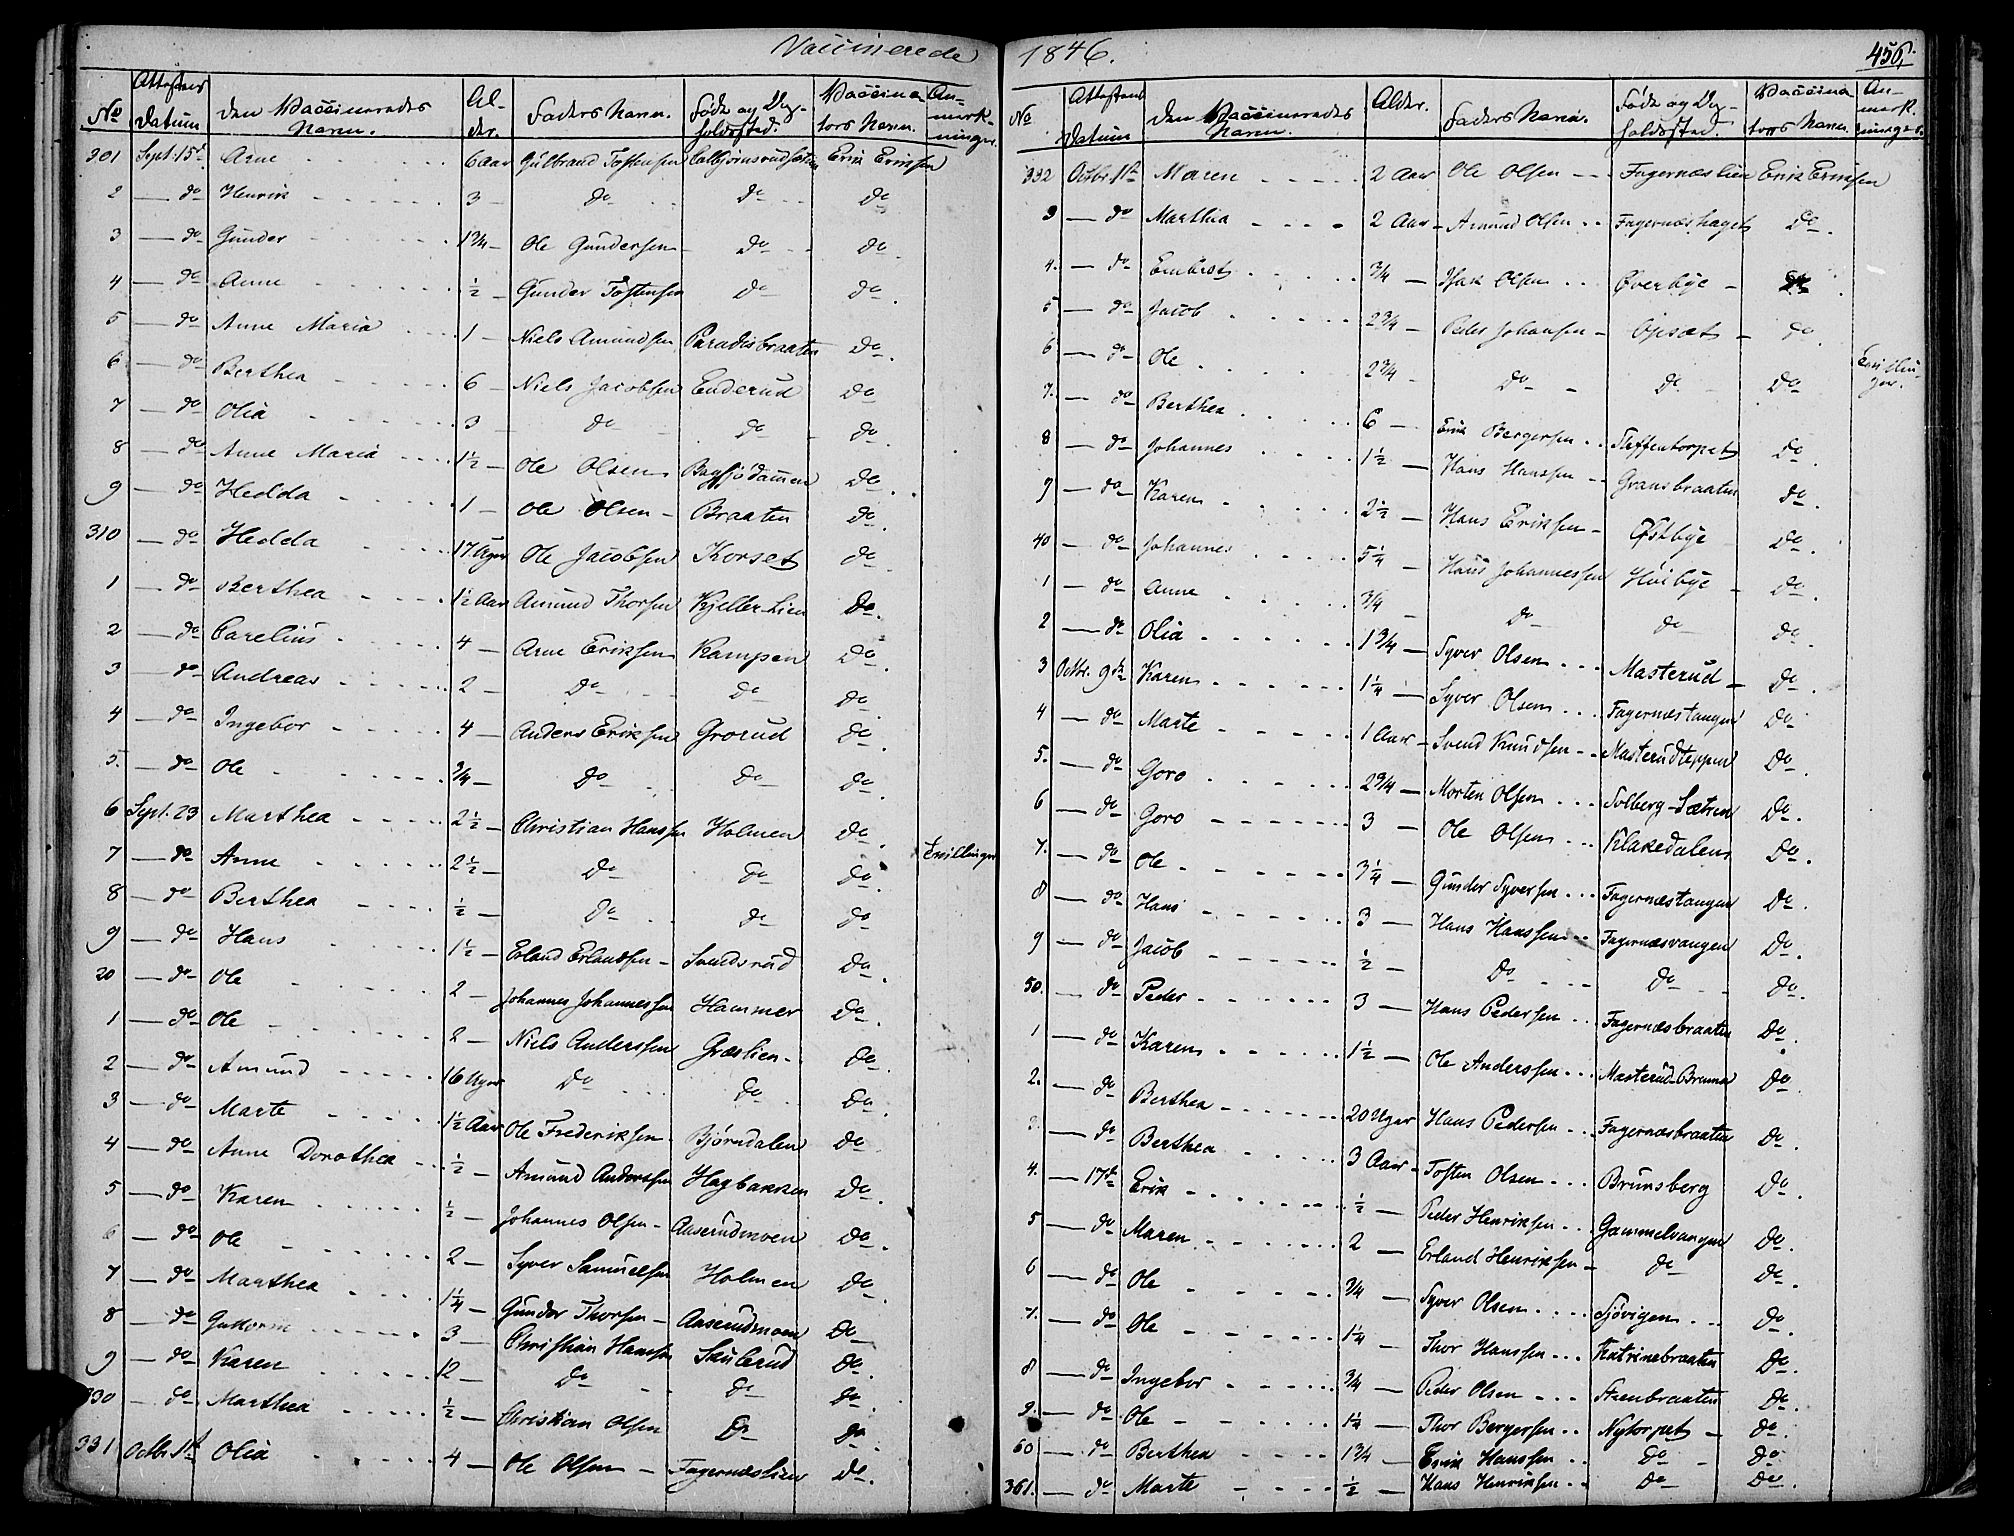 Vaccinerede
No Attestens Datum Den Vaccineredes Navn. Alder. Faders Navn. Føde og Opholdssted. Vaccinators Navn. Anmærkninger.
301 Sept. 15d Arne 6 Aar Gulbrand Tostensen Erik Eriksen
2 — do Henrik 3 — do do do
3 — do Gunder 1 3/4 — Ole Gundersen do do
4 — do Anne 1/2 — Gunder Tostensen do do
5 — do Anne Maria 1 — Niels Amundsen Paradisbraaten do
6 — do Berthea 6 — Niels Jacobsen Enderud do
7 — do Olia 3 — do do do
8 — do Anne Maria 1 1/2 — Ole Olsen do
9 — do Hedda 1 — Ole Olsen Braaten do
310 — do Hedda 17 Uger Ole Jacobsen Korset do
1 — do Berthea 1 1/2 Aar Amund Thorsen Kjeller-Lien do
2 — do Carelius 4 — Arne Eriksen Kampen do
3 — do Andreas 2 — do do do
4 — do Ingebor 4 — Anders Eriksen Grorud do
5. — do Ole 3/4 — do do do
6 Sept. 23 Marthea 2 1/2 — Christian Hanssen Holmen do
7 — do Anne 2 1/2 — do do do Tvillinger
8 — do Berthea 1/2 — do do do
9 — do Hans 1 1/2 — Erland Erlandsen Svendsrud do
20 — do Ole 2 — Johannes Johannessen Hammer do
1 — do Ole 2 — Niels Anderssen Græslien do
2 — do Amund 16 Uger do do do
3 — do Marte 1 1/2 Aar Ole Frederiksen Bjørndalen do
4 — do Anne Dorothea 1/2 — Amund Anderssen Hagbakken do
5 — do Karen 1/2 — Johannes Olsen Aaserudmoen do
6 — do Ole 2 — Syver Samuelsen Holmen do
7 — do Marthea 1 1/4 — Gunder Thorsen Aaserudmoen do
8 — do Guttorm 3 — Christian Hanssen Saulerud do
9 — do Karen 12 — do do do
330 — do Marthea 1/2 — Christian Olsen do do
331 Octbr. 1st Olia 4 — Ole Olsen Fagernæslien do
1846.
456.
No Attestens Datum Den Vaccineredes Navn. Alder. Faders Navn. Føde og Opholdssted. Vaccinators Navn. Anmærkninger.
332 Octbr. 1st Maren 2 Aar Ole Olsen Fagernæslien Erik Eriksen
3 — do Marthia 2 Aar Amund Olsen Fagernæshaget do
4. — do Embret 3/4 — Isak Olsen Øverbye do
5 — do Jacob 2 3/4 — Peder Johansen Opsæt do
6 — do Ole 2 3/4 — do do do Tvillinger.
7. — do Berthea 6 — Erik Bergersen Steffentorpet do
8 — do Johannes 1 1/2 — Hans Hanssen Gransbraaten do
9 — do Karen 2 1/2 — Hans Eriksen Østbye do
40 — do Johannes 5 1/4 — Hans Johannessen Høibye do
1 — do Anne 3/4 — do do do
2 — do Olia 1 3/4 — Syver Olsen Masterud do
3 Octbr. 9de Karen 1 1/4 — Syver Olsen Fagernæstangen do
4 — do Marte 1 Aar Svend Knudsen Masterudteppen do
5. — do Goro 2 3/4 — Morten Olsen Solberg-Sætren do
6 — do Goro 3 — Ole Olsen Klakedalen do
7. — do Ole 3 1/4 — Gunder Syversen Fagernæstangen do
8 — do Hans 3 — Hans Hanssen Fagernæsvangen do
9 — do Jacob 1/2 — do do do
50. — do Peder 3 — Hans Pedersen Fagernæsbraaten do
1 — do Karen 1 1/2 — Ole Anderssen Masterud-Brunna do
2. — do Berthea 20 Uger Hans Pedersen Fagernæsbraaten do
3. — do Berthea 3 Aar Tosten Olsen Brunsberg do
4. — 17d Erik 1/2 — Peder Henriksen Gammelvangen do
5 — do Maren 2 — Erland Henriksen do do
6 — do Ole 3/4 — Syver Olsen Sjøvigen do
7. — do Ole 1 1/4 — Thor Hanssen Katrinebraaten do
8 — do Ingebor 3/4 — Peder Olsen Steenbraaten do
9. — do Ole 1 1/4 — Thor Bergersen Nytorpet do
60 — do Berthea 1 3/4 — Erik Hanssen do do
361. — do Marte 1/2 — Hans Henriksen do do